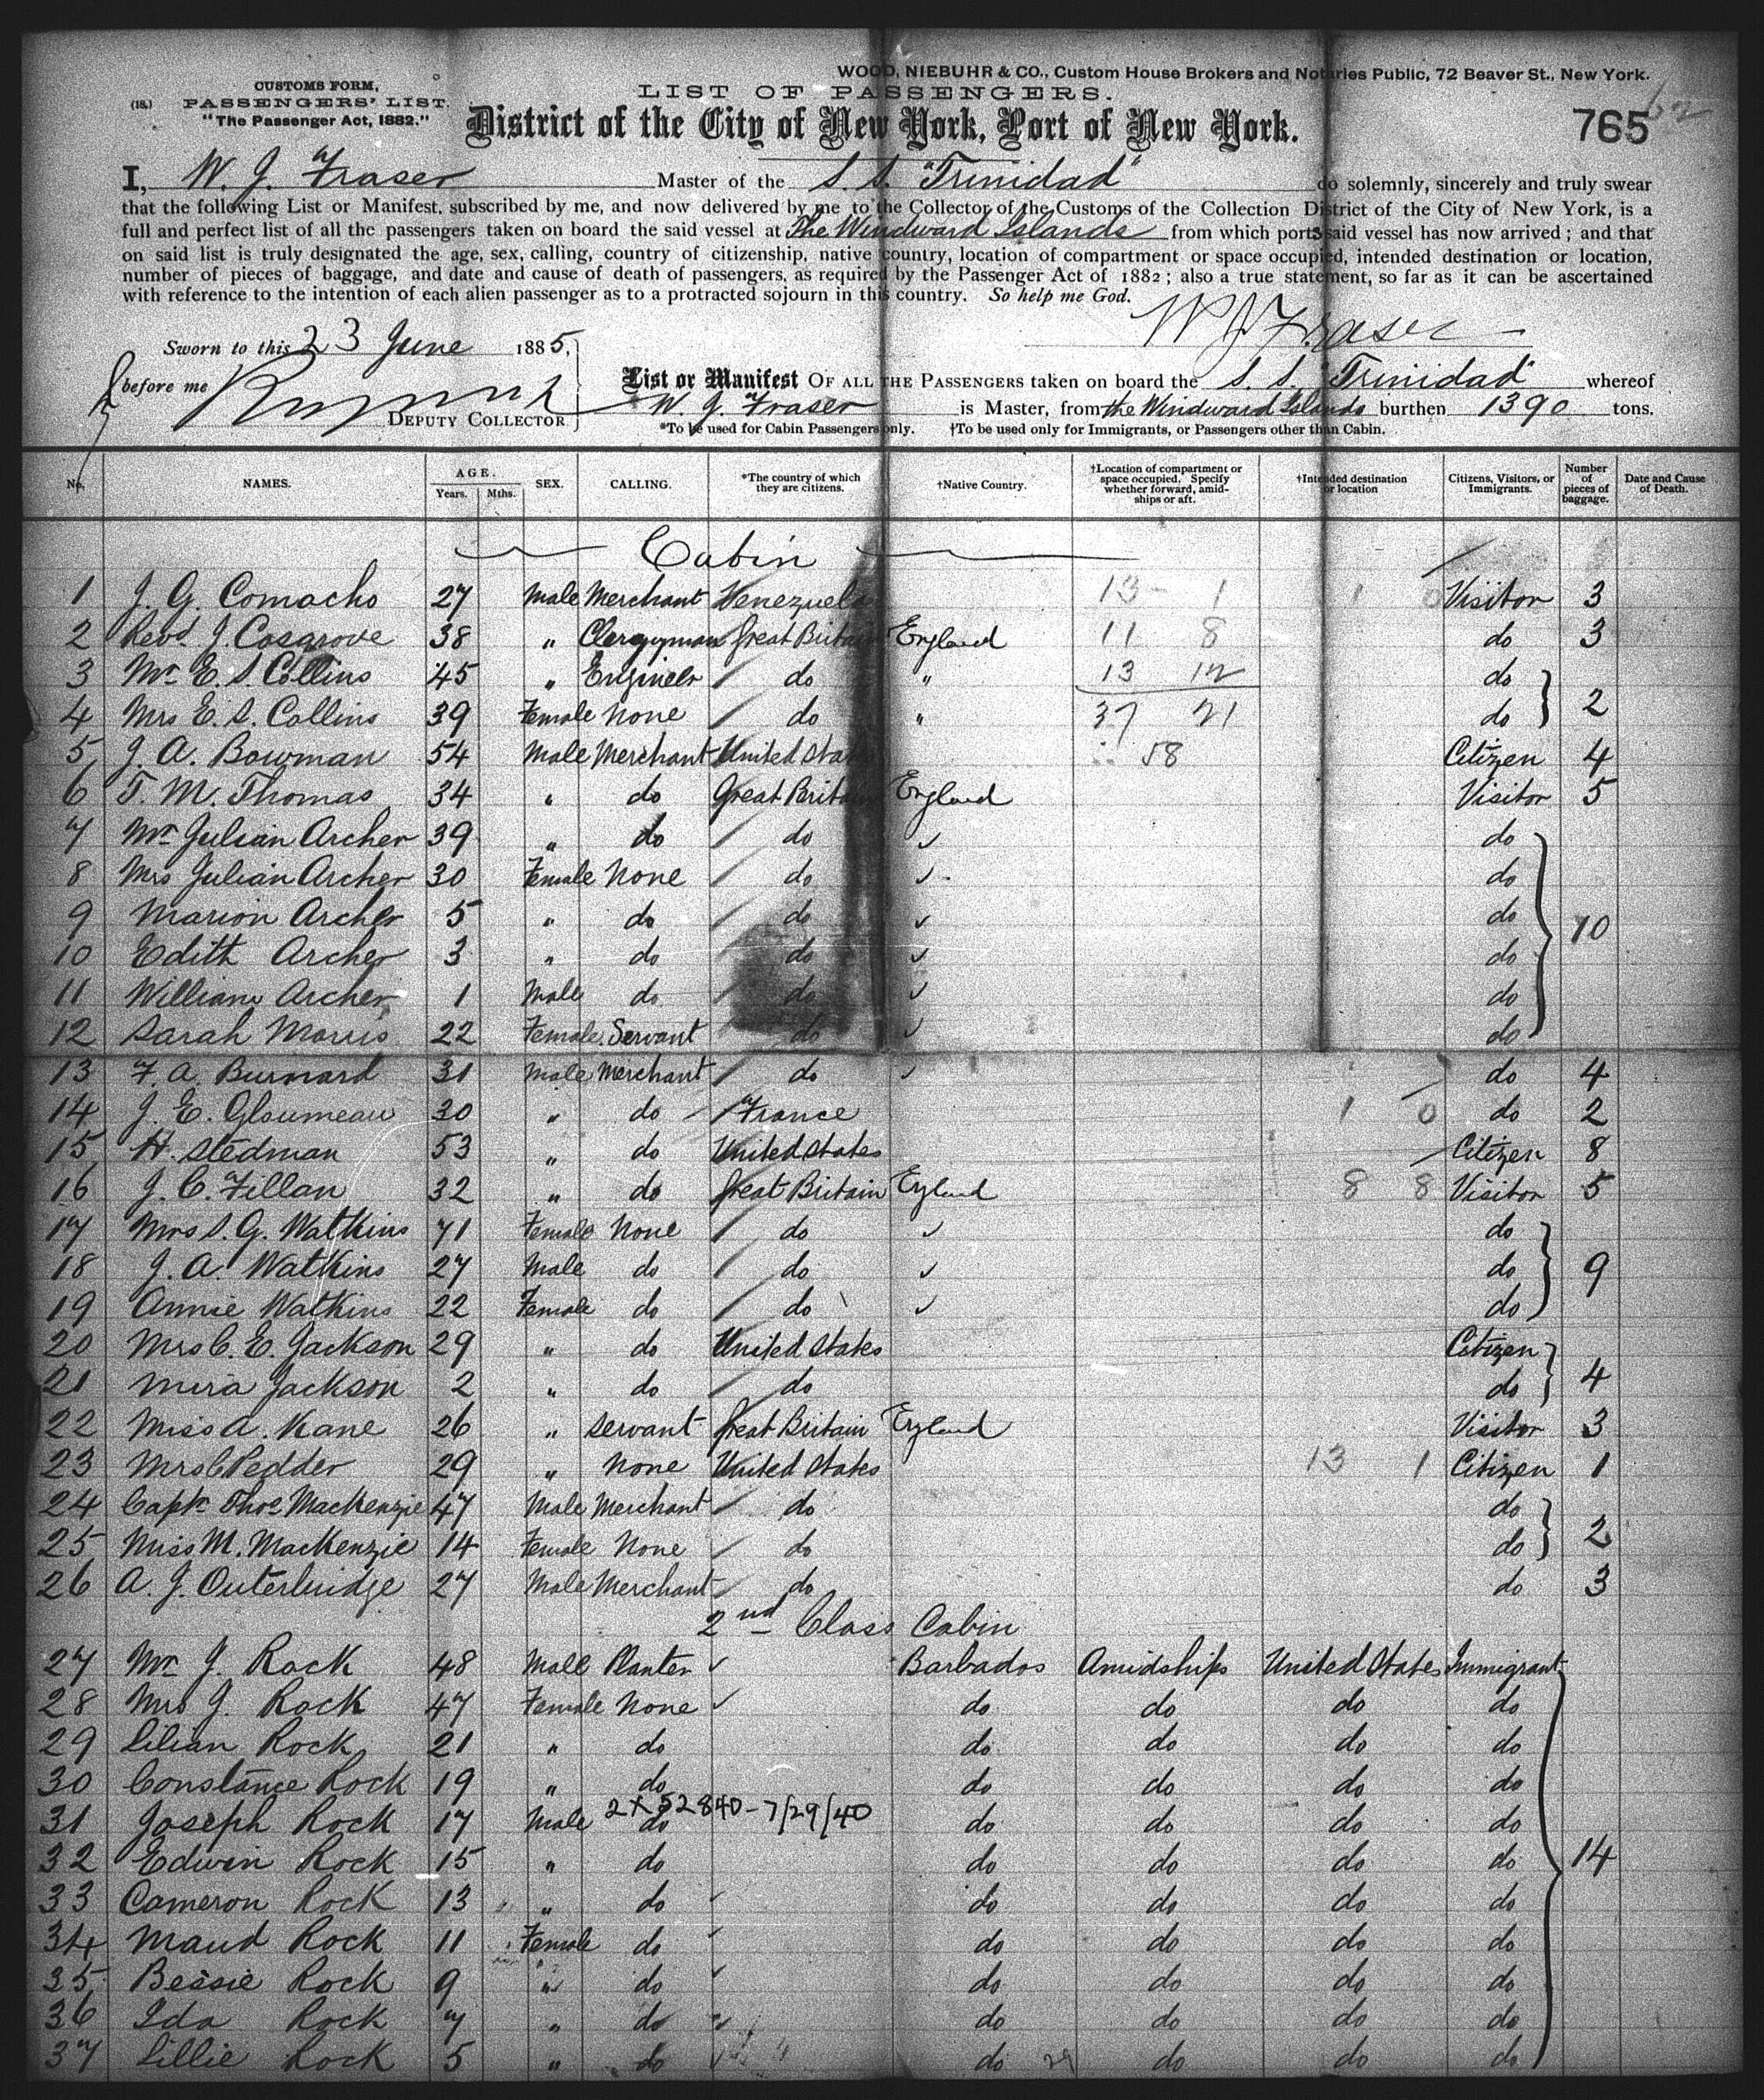 WOOD, NIEBUHR & CO., Custom House Brokers and Notaries Public, 72 Beaver St., New York.
CUSTOMS FORM,
LIST OF PASSENGERS.
(18,) PASSENGERS' LIST.
"The Passenger Act, 1882."
District of the City of New York, Port of New York.
765
I, W. J. Fraser Master of the S. S. "Trinidad" do solemnly, sincerely and truly swear
that the following List or Manifest, subscribed by me, and now delivered by me to the Collector of the Customs of the Collection District of the City of New York, is a
full and perfect list of all the passengers taken on board the said vessel at The Windward Islands from which ports said vessel has now arrived; and that
on said list is truly designated the age, sex, calling, country of citizenship, native country, location of compartment or space occupied, intended destination or location,
number of pieces of baggage, and date and cause of death of passengers, as required by the Passenger Act of 1882; also a true statement, so far as it can be ascertained
with reference to the intention of each alien passenger as to a protracted sojourn in this country. So help me God.
W J Fraser
Sworn to this 23 June 1885,
before me
DEPUTY COLLECTOR
List or Manifest OF ALL THE PASSENGERS taken on board the S. S. "Trinidad" whereof
W. J. Fraser is Master, from the Windward Islands burthen 1390 tons.
*To be used for Cabin Passengers only. †To be used only for Immigrants, or Passengers other than Cabin.
No. NAMES. AGE. Years. Mths. SEX. CALLING. *The country of which they are citizens. †Native Country. †Location of compartment or space occupied. Specify whether forward, amidships or aft. †Intended destination or location Citizens, Visitors, or Immigrants. Number of pieces of baggage. Date and Cause of Death.
Cabin
1 J. G. Comacho 27 Male Merchant Venezuela 13 - 1 1 0 Visitor 3
2 Revd. J. Cosgrove 38 " Clergyman Great Britain England 11 8 do 3
3 Mr. E. S. Collins 45 " Engineer do " 13 12 do
4 Mrs E. S. Collins 39 Female None do " 37 21 do 2
5 J. A. Bowman 54 Male Merchant United States 58 Citizen 4
6 T. M. Thomas 34 " do Great Britain England Visitor 5
7 Mr Julian Archer 39 " do do ✓ do
8 Mrs Julian Archer 30 Female None do ✓ do
9 Marion Archer 5 " do do ✓ do 10
10 Edith Archer 3 " do do ✓ do
11 William Archer 1 Male do do ✓ do
12 Sarah Morris 22 Female Servant do ✓ do
13 F. A. Burnard 31 Male Merchant do ✓ do 4
14 J. E. Gloumeau 30 " do France 1 0 do 2
15 H. Stedman 53 " do United States Citizen 8
16 J. C. Fillan 32 " do Great Britain England 8 8 Visitor 5
17 Mrs S. G. Watkins 71 Female None do ✓ do
18 J. A. Watkins 27 Male do do ✓ do 9
19 Annie Watkins 22 Female do do ✓ do
20 Mrs C. E. Jackson 29 " do United States Citizen
21 Mira Jackson 2 " do do do 4
22 Miss A. Kane 26 " Servant Great Britain England Visitor 3
23 Mrs C Pedder 29 " None United States 13 1 Citizen 1
24 Captn Thos. MacKenzie 47 Male Merchant do do
25 Miss M. MacKenzie 14 Female None do do 2
26 A. J. Outerbridge 27 Male Merchant do do 3
2nd Class Cabin
27 Mr J. Rock 48 Male Planter ✓ Barbados Amidships United States Immigrant
28 Mrs J. Rock 47 Female None ✓ do do do do
29 Lilian Rock 21 " do do do do do
30 Constance Rock 19 " do do do do do
2X52840-7/29/40
31 Joseph Rock 17 Male do do do do do
32 Edwin Rock 15 " do do do do do 14
33 Cameron Rock 13 " do do do do do
34 Maud Rock 11 Female do do do do do
35 Bessie Rock 9 " do do do do do
36 Ida Rock 7 " do do do do do
37 Lillie Rock 5 " do do do do do